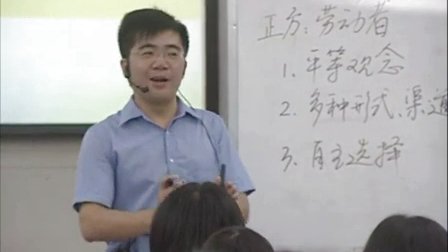 正方：劳动者
1. 平等观念
2. 多种形式、渠道
3. 自主选择